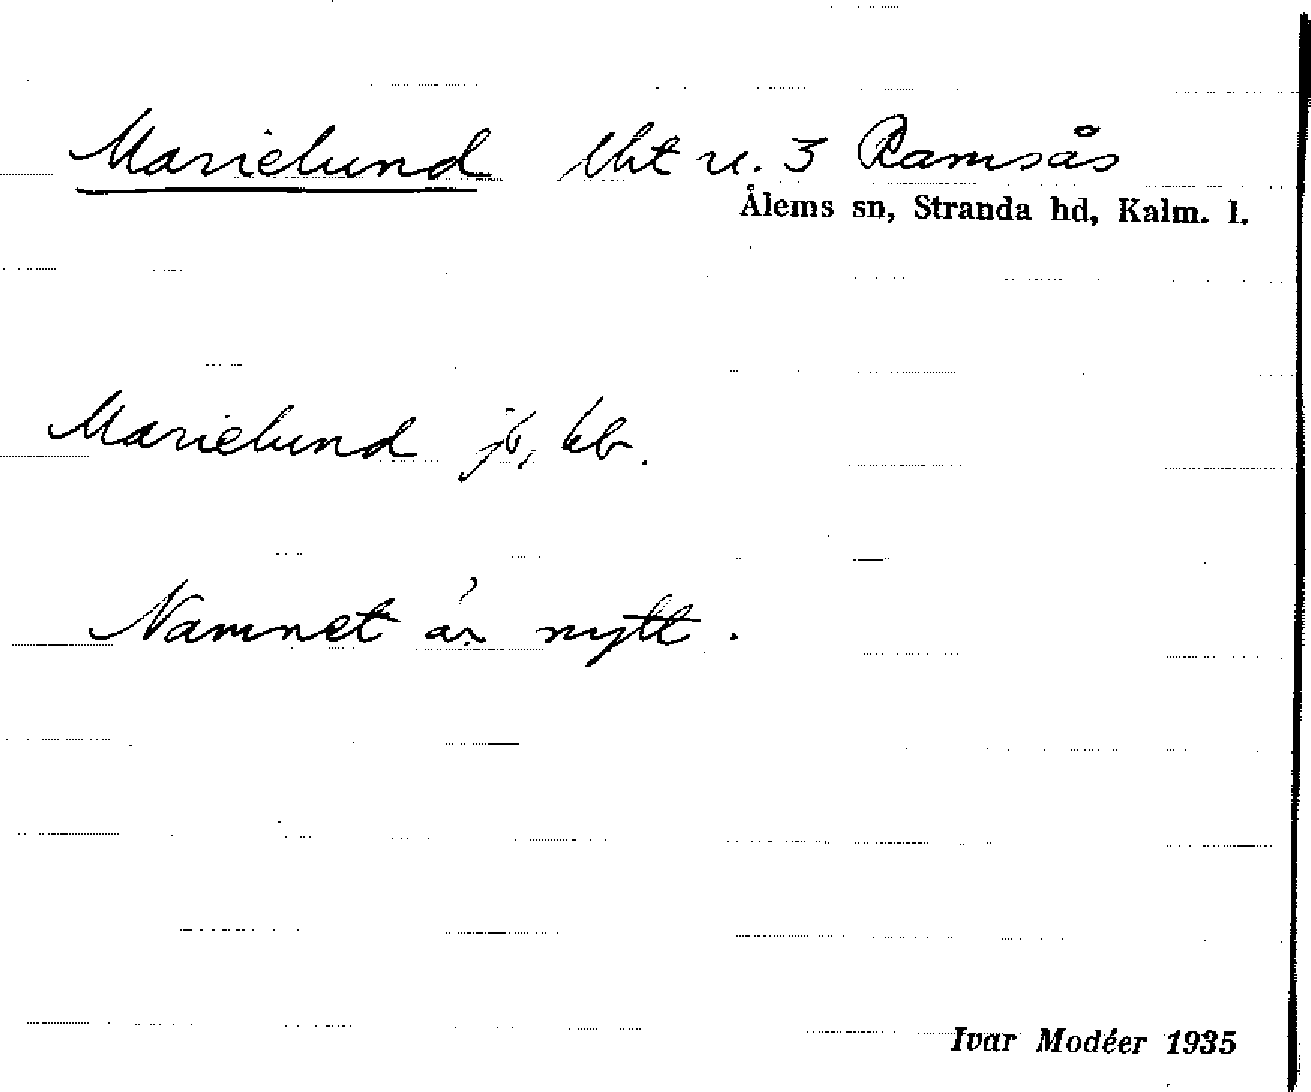 Marielund lht u. 3 Ramsås
Ålems sn, Stranda hd, Kalm. l.
Marielund jb, kb.
Namnet är nytt.
Ivar Modéer 1935